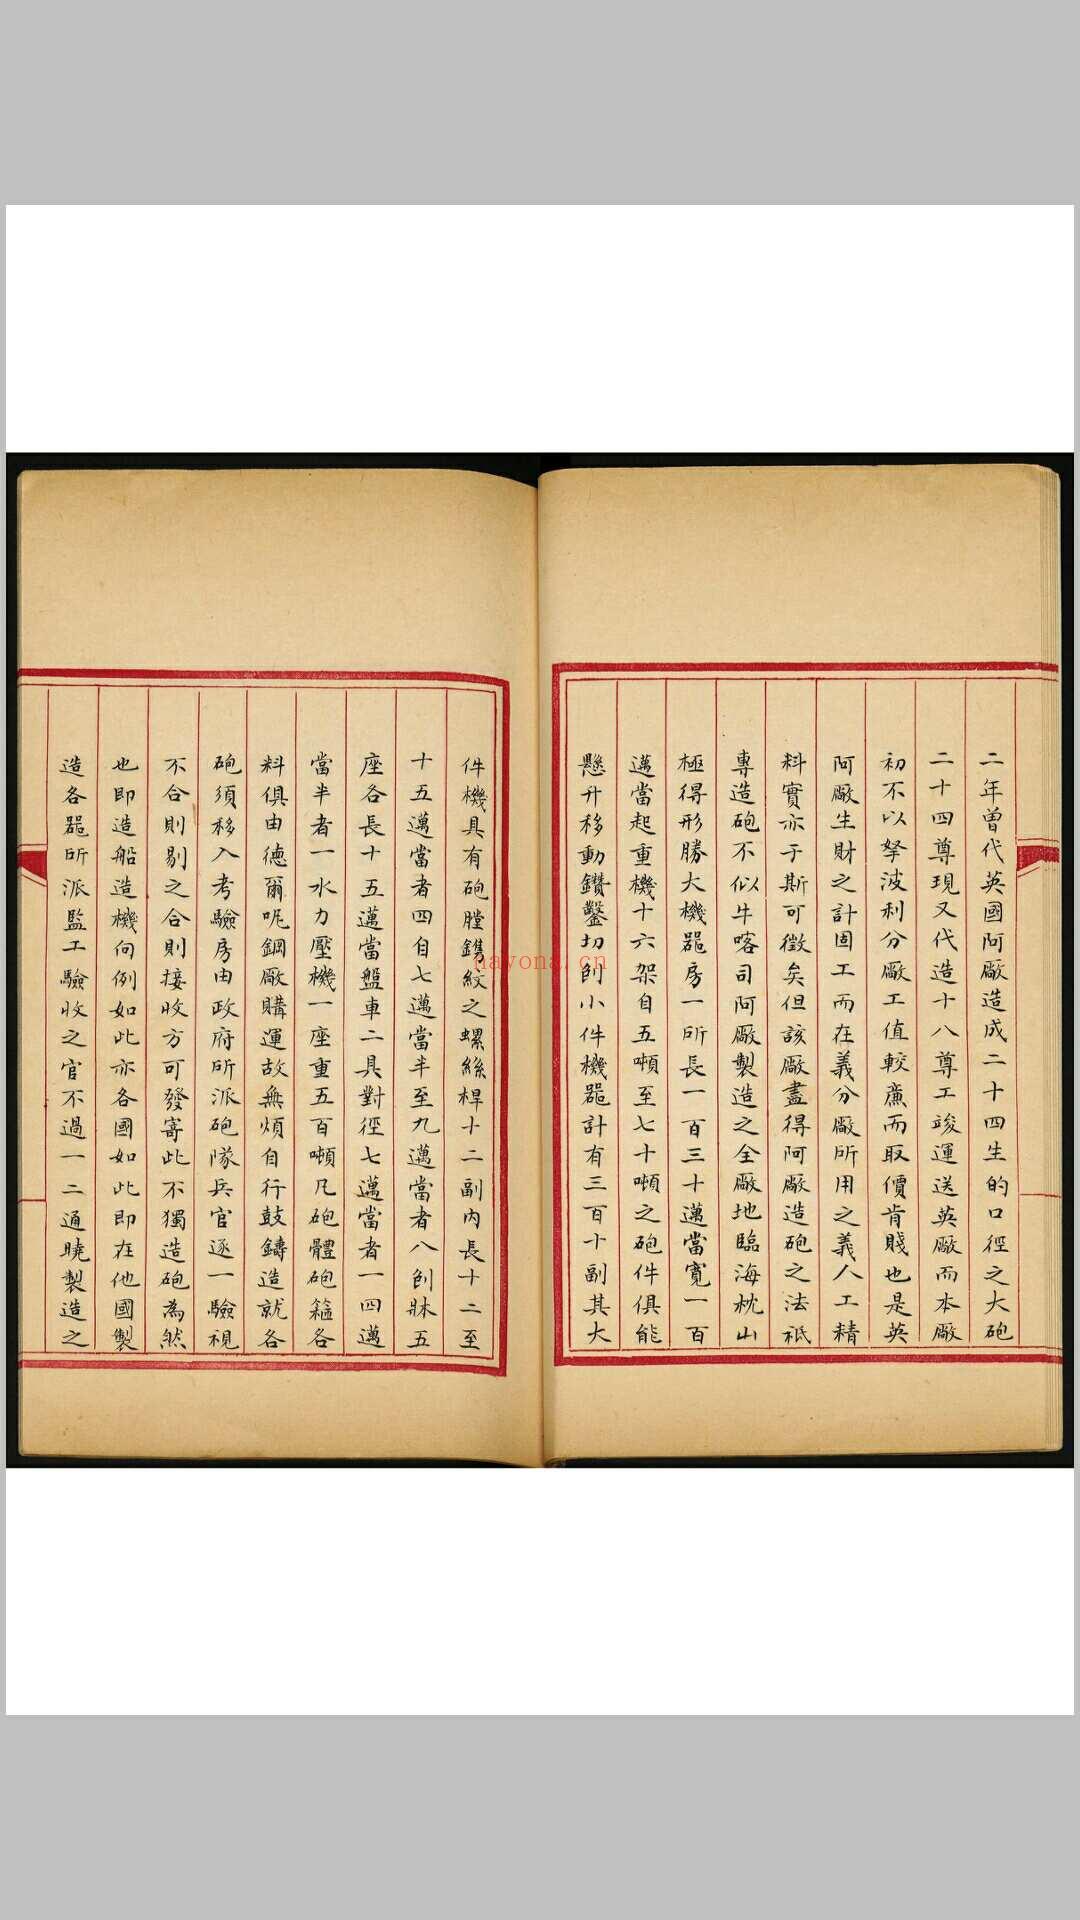 二年曾代英國阿厰造成二十四生的口徑之大砲
二十四尊現又代造十八尊工竣運送英厰而本厰
初不以拏波利分厰工值較亷而取價肯賤也是英
阿厰生財之計固工而在義分厰所用之義人工精
料實亦于斯可徵矣但該厰盡得阿厰造砲之法祗
專造砲不似牛喀司阿厰製造之全厰地臨海枕山
極得形勝大機噐房一所長一百三十邁當寬一百
邁當起重機十六架自五噸至七十噸之砲件俱能
懸升移動鑽鑿切刨小件機噐計有三百十副其大
件機具有砲膛鐫紋之螺絲桿十二副內長十二至
十五邁當者四自七邁當半至九邁當者八刨牀五
座各長十五邁當盤車二具對徑七邁當者一四邁
當半者一水力壓機一座重五百噸凡砲體砲箍各
料俱由德爾呢鋼厰購運故無煩自行鼓鑄造就各
砲須移入考驗房由政府所派砲隊兵官逐一驗視
不合則剔之合則接收方可發寄此不獨造砲為然
也即造船造機向例如此亦各國如此即在他國製
造各噐所派監工驗收之官不過一二通曉製造之
nayona.cn